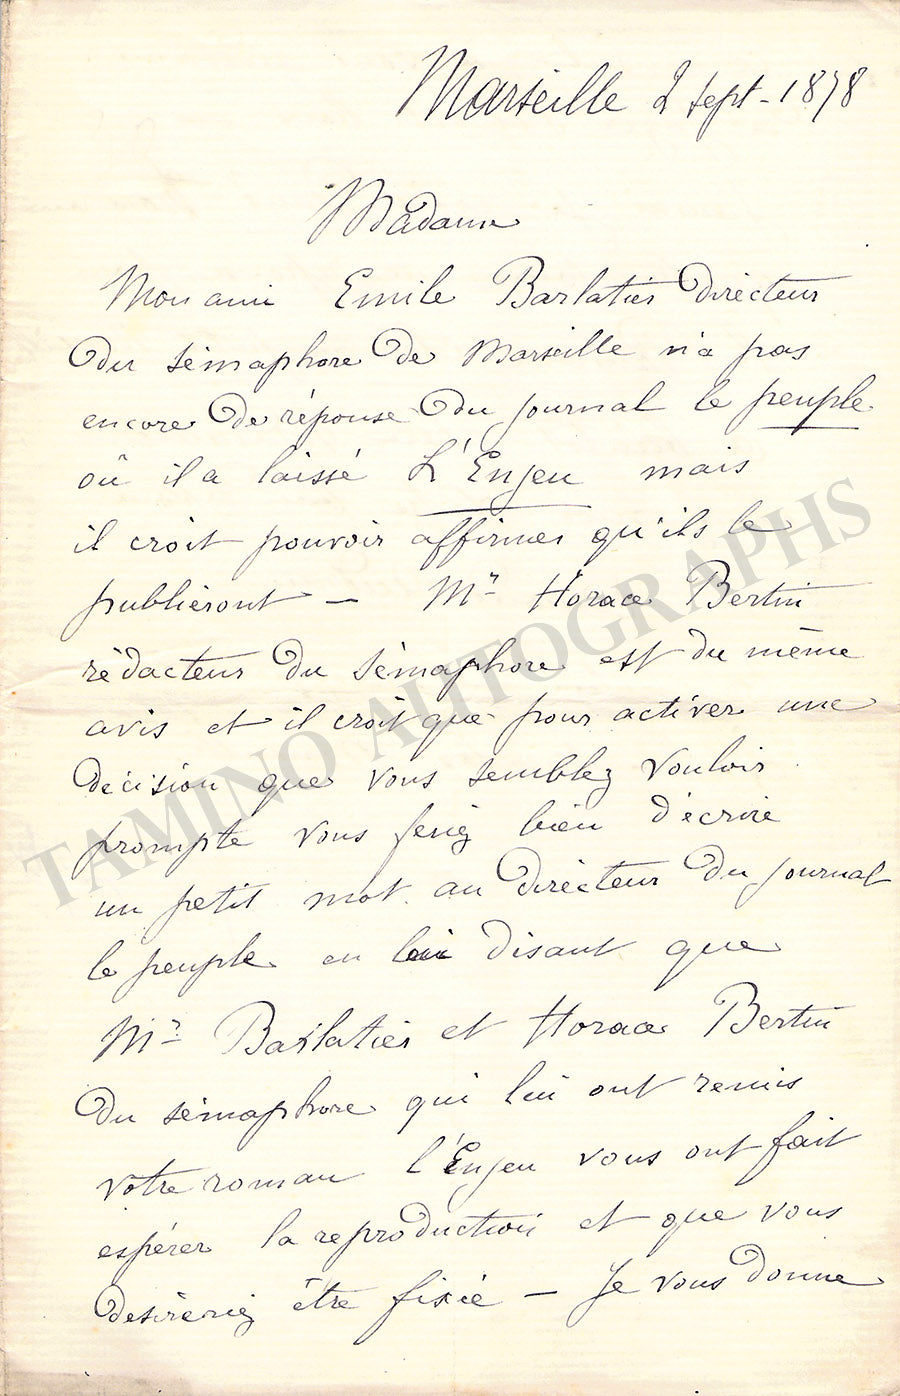 Marseille 2 sept - 1878
Madame
Mon ami Emile Barlatier directeur
du sémaphore de Marseille n'a pas
encore de réponse du journal le peuple
où il a laissé L'Enjeu mais
il croit pouvoir affirmer qu'ils le
publieront — Mr Horace Bertin
rédacteur du sémaphore est du même
avis et il croit que pour activer une
décision que vous semblez vouloir
prompte vous feriez bien d'écrire
un petit mot au directeur du journal
le peuple en lui disant que
Mr Barlatier et Horace Bertin
du sémaphore qui lui ont remis
votre roman l'Enjeu vous ont fait
espérer la reproduction et que vous
desireriez être fixée — Je vous donne
TAMINO AUTOGRAPHS